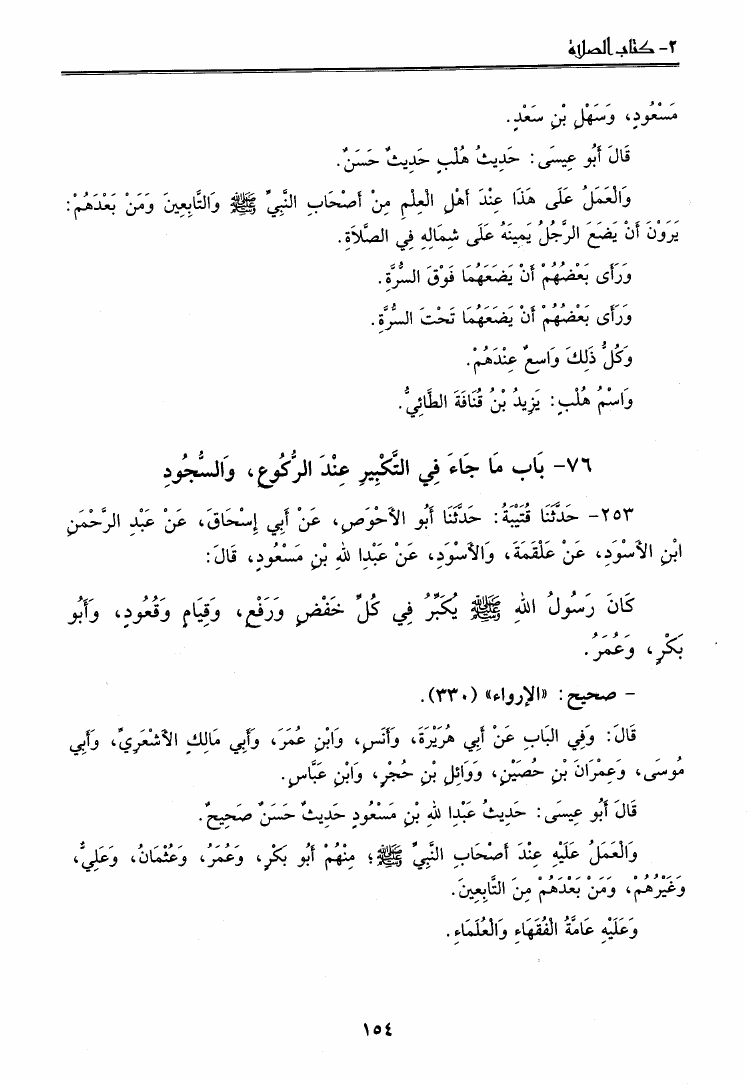 ٢- كتاب الصلاة
مَسْعُودٍ، وَسَهْلِ بْنِ سَعْدٍ.
قَالَ أَبُو عِيسَى: حَدِيثُ هُلْبٍ حَدِيثٌ حَسَنٌ.
وَالْعَمَلُ عَلَى هَذَا عِنْدَ أَهْلِ الْعِلْمِ مِنْ أَصْحَابِ النَّبِيِّ ﷺ وَالتَّابِعِينَ وَمَنْ بَعْدَهُمْ:
يَرَوْنَ أَنْ يَضَعَ الرَّجُلُ يَمِينَهُ عَلَى شِمَالِهِ فِي الصَّلاَةِ.
وَرَأَى بَعْضُهُمْ أَنْ يَضَعَهُمَا فَوْقَ السُّرَّةِ.
وَرَأَى بَعْضُهُمْ أَنْ يَضَعَهُمَا تَحْتَ السُّرَّةِ.
وَكُلُّ ذَلِكَ وَاسِعٌ عِنْدَهُمْ.
وَاسْمُ هُلْبٍ: يَزِيدُ بْنُ قُنَافَةَ الطَّائِيُّ.
٧٦- بَاب مَا جَاءَ فِي التَّكْبِيرِ عِنْدَ الرُّكُوعِ، وَالسُّجُودِ
٢٥٣- حَدَّثَنَا قُتَيْبَةُ: حَدَّثَنَا أَبُو الأَحْوَصِ، عَنْ أَبِي إِسْحَاقَ، عَنْ عَبْدِ الرَّحْمَنِ
ابْنِ الأَسْوَدِ، عَنْ عَلْقَمَةَ، وَالأَسْوَدِ، عَنْ عَبْدِا للهِ بْنِ مَسْعُودٍ، قَالَ:
كَانَ رَسُولُ اللهِ ﷺ يُكَبِّرُ فِي كُلِّ خَفْضٍ وَرَفْعٍ، وَقِيَامٍ وَقُعُودٍ، وَأَبُو
بَكْرٍ، وَعُمَرُ.
- صحيح: «الإرواء» (٣٣٠).
قَالَ: وَفِي الْبَابِ عَنْ أَبِي هُرَيْرَةَ، وَأَنَسٍ، وَابْنِ عُمَرَ، وَأَبِي مَالِكٍ الأَشْعَرِيِّ، وَأَبِي
مُوسَى، وَعِمْرَانَ بْنِ حُصَيْنٍ، وَوَائِلِ بْنِ حُجْرٍ، وَابْنِ عَبَّاسٍ.
قَالَ أَبُو عِيسَى: حَدِيثُ عَبْدِا للهِ بْنِ مَسْعُودٍ حَدِيثٌ حَسَنٌ صَحِيحٌ.
وَالْعَمَلُ عَلَيْهِ عِنْدَ أَصْحَابِ النَّبِيِّ ﷺ؛ مِنْهُمْ أَبُو بَكْرٍ، وَعُمَرُ، وَعُثْمَانُ، وَعَلِيٌّ،
وَغَيْرُهُمْ، وَمَنْ بَعْدَهُمْ مِنَ التَّابِعِينَ.
وَعَلَيْهِ عَامَّةُ الْفُقَهَاءِ وَالْعُلَمَاءِ.
١٥٤